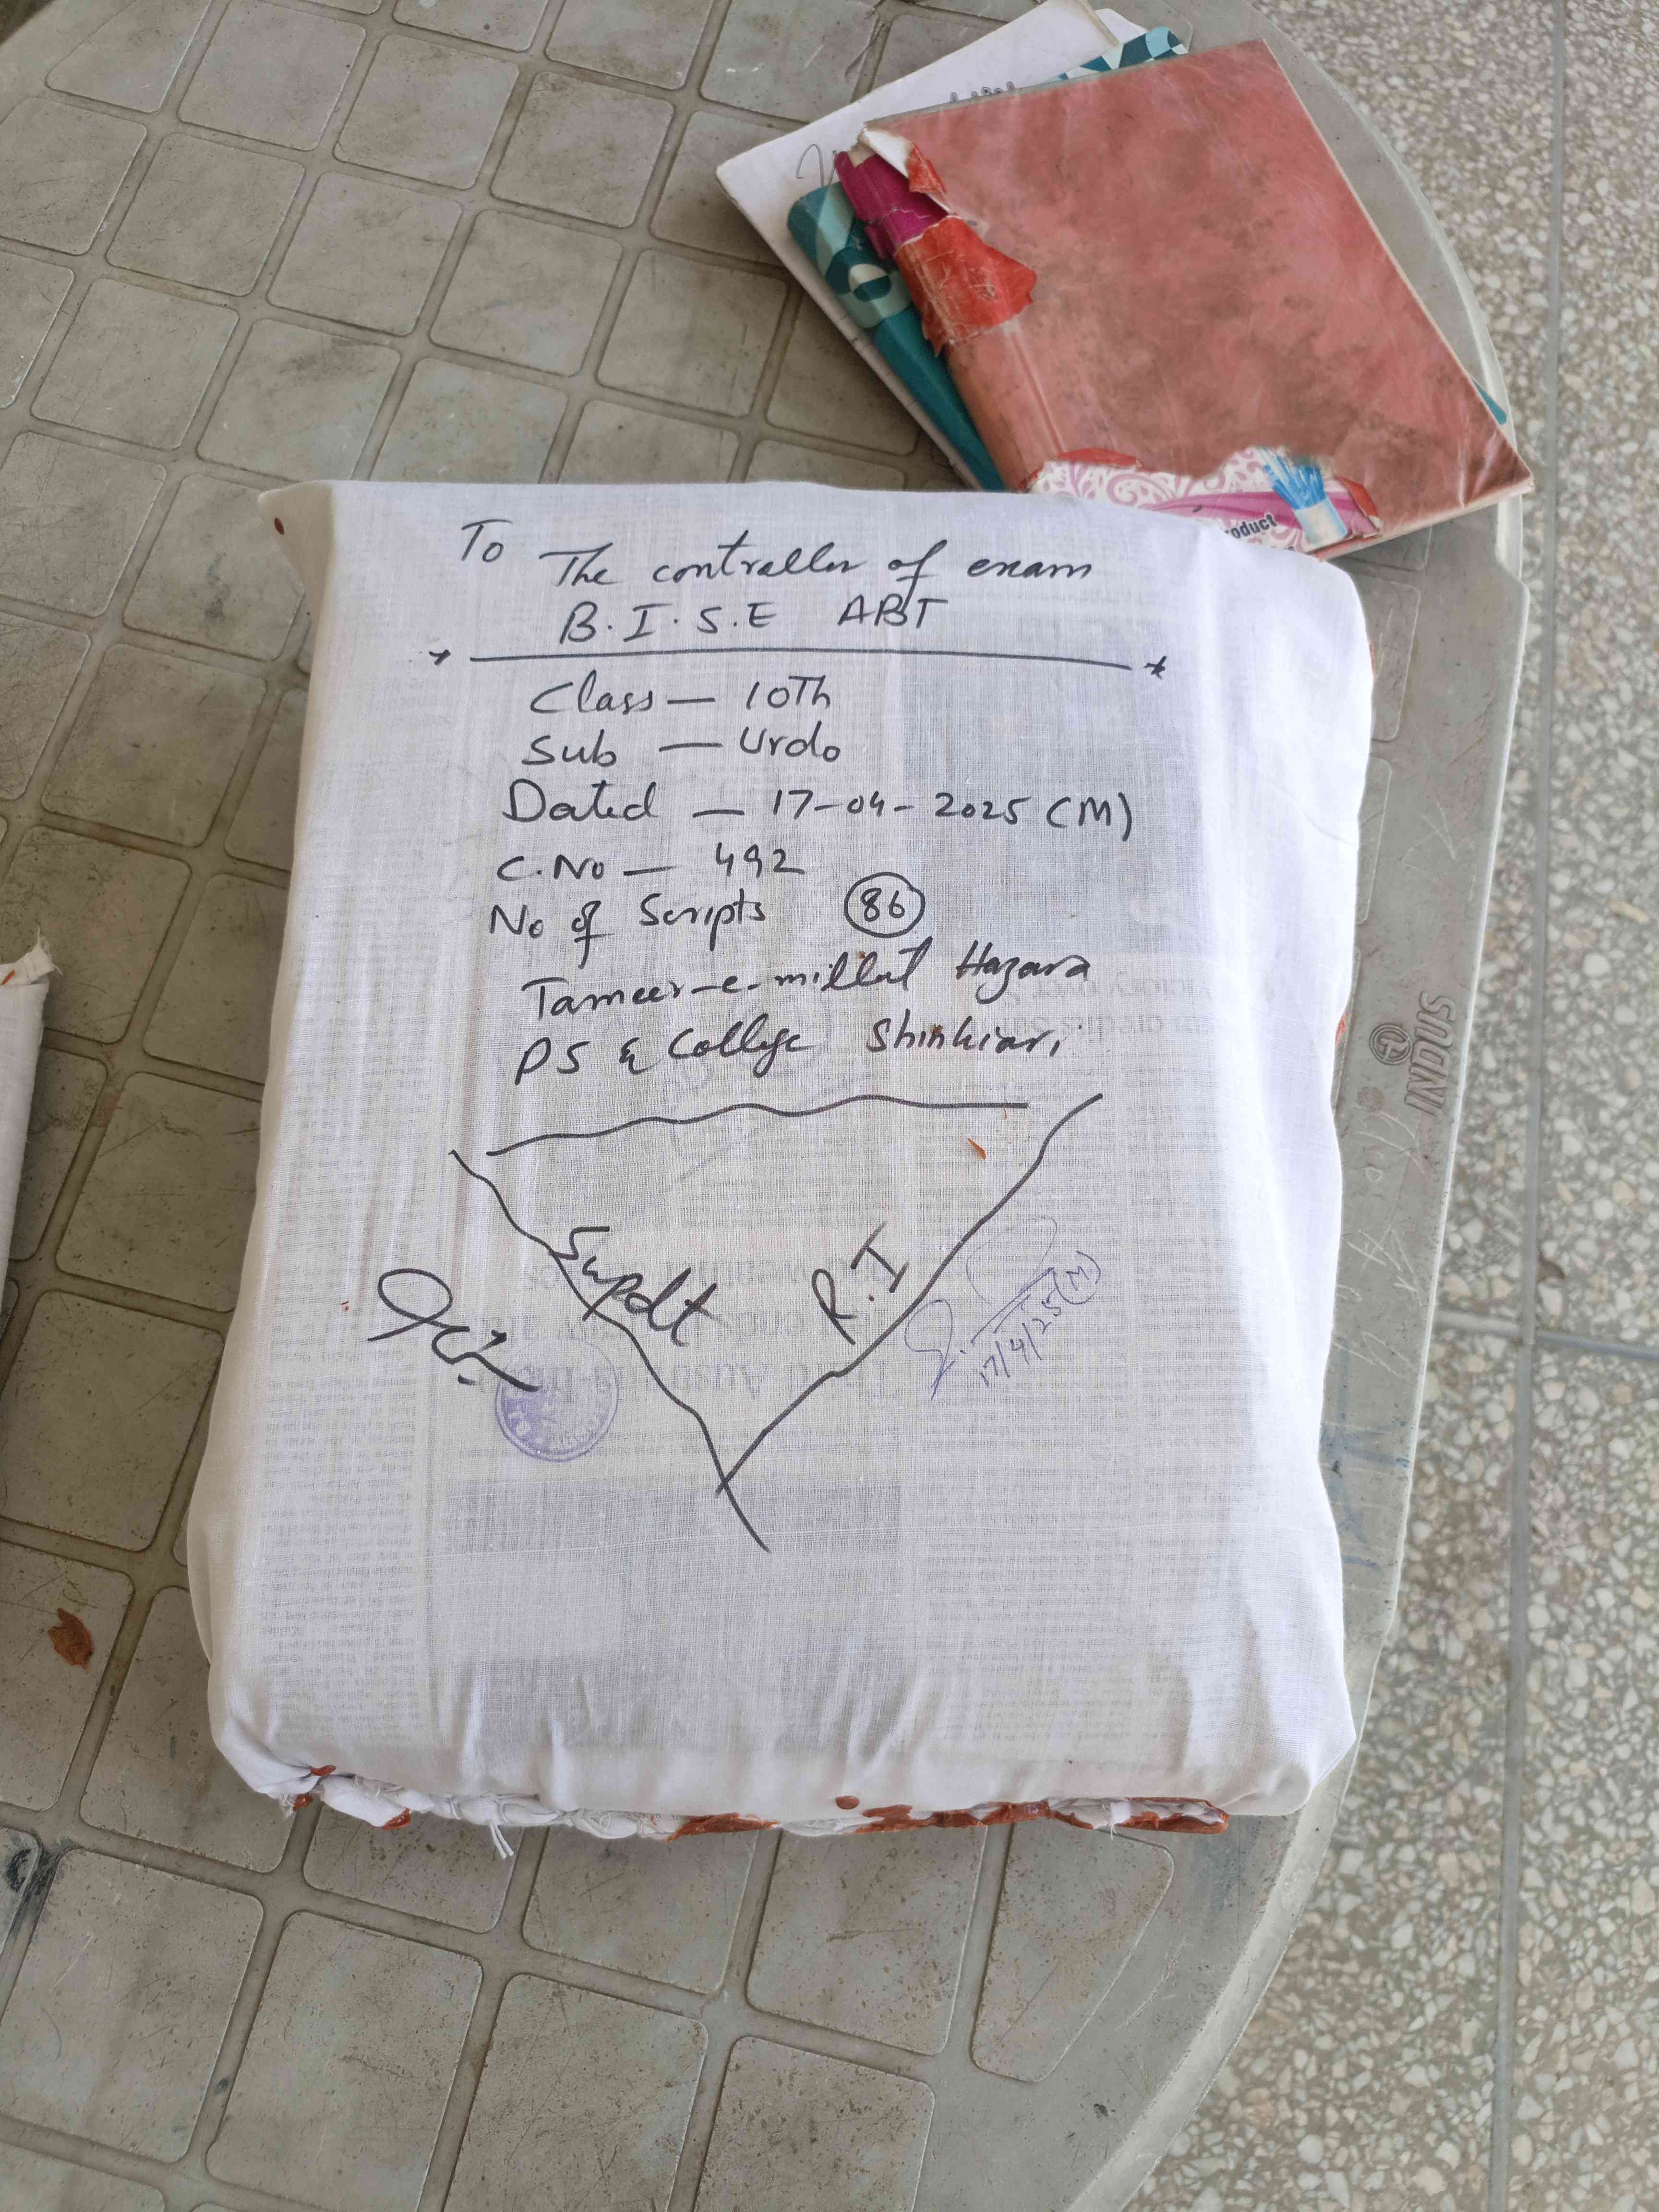 To
The controller of exam
B.I.S.E ABT
Class — 10Th
Sub — Urdo
Dated — 17-04-2025 (M)
C.No — 492
No of Scripts 86
Tameer-e-millat Hazara
PS & College Shinkiari
Supdt R.I
17/4/25(M)
oduct
INDUS